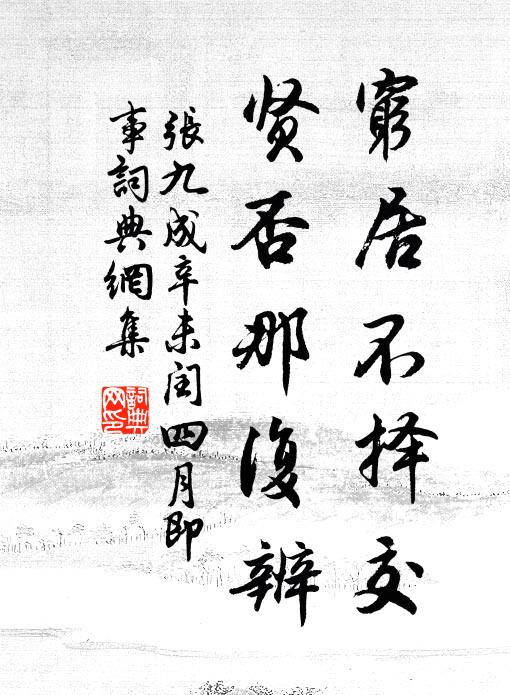 窮居不择交
贤否那復辨
張九成辛未闰四月即
事詞典網集
詞典
网印